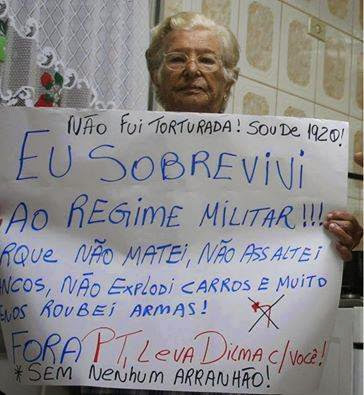 NÃO FUI TORTURADA! SOU DE 1920!
EU SOBREVIVI
AO REGIME MILITAR!!!
RQUE NÃO MATEI, NÃO ASSALTEI
ANCOS, NÃO EXPLODI CARROS E MUITO
ENOS ROUBEI ARMAS!
FORA PT, LEVA DILMA C/ VOCÊ!
*SEM NENHUM ARRANHÃO!